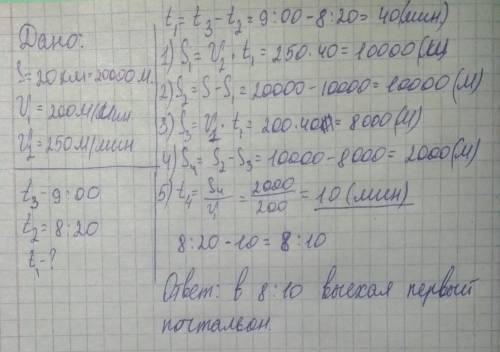 Дано:
S=20км=20000м.
V₁=200м/мин
V₂=250м/мин
t₃-9:00
t₂=8:20
t₁-?
t₁=t₃-t₂=9:00-8:20=40(мин)
1) S₁=V₂·t₁=250·40=10000(м)
2) S₂=S-S₁=20000-10000=10000(м)
3) S₃=V₁·t₁=200·40=8000(м)
4) S₄=S₂-S₃=10000-8000=2000(м)
5) t₄=S₄/V₁=2000/200=10(мин)
8:20-10=8:10
Ответ: в 8:10 выехал первый
почтальон.